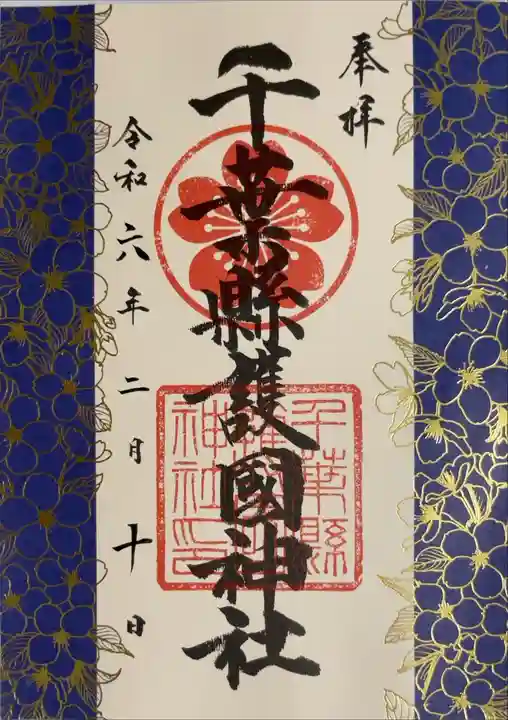 奉拝
千葉縣護國神社
千葉縣護國神社印
令和六年二月十日